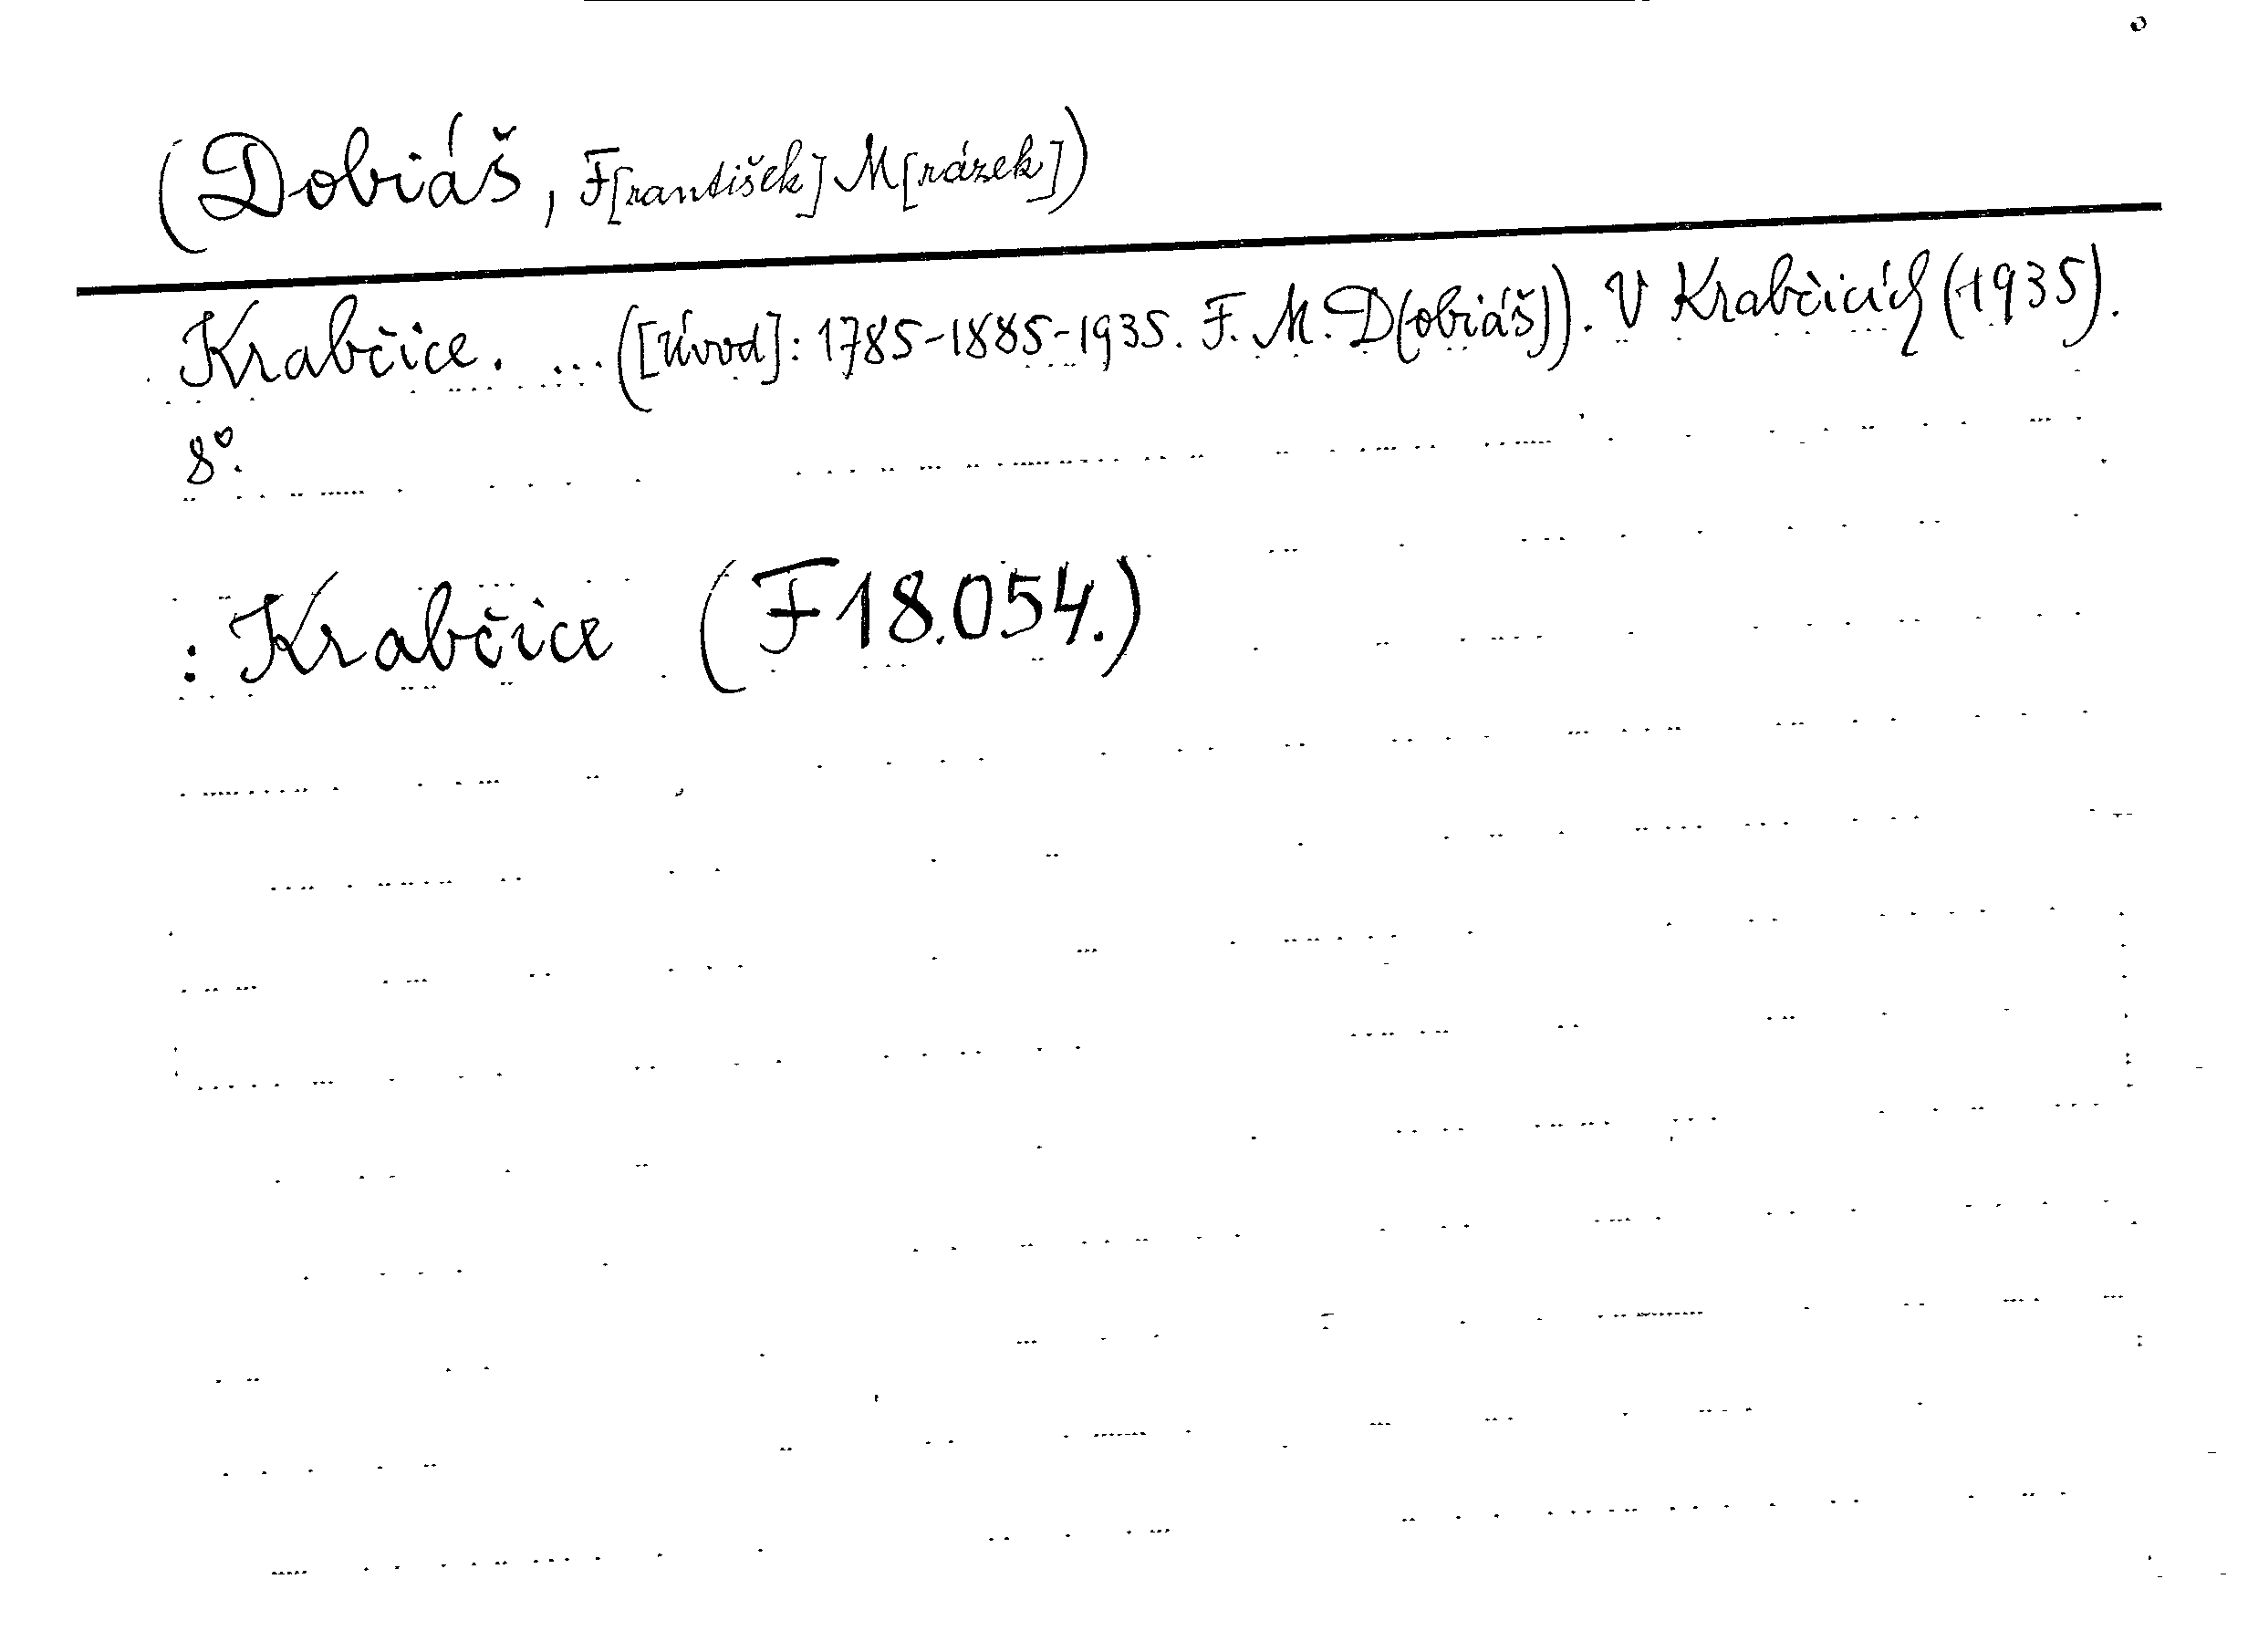 (Dobiáš, F[rantišek] M[rázek])
Krabčice. ... ([Úvod]: 1785-1885-1935. F. M. D(obiáš)). V Krabčicích (1935).
8°.
: Krabčice (F 18.054.)